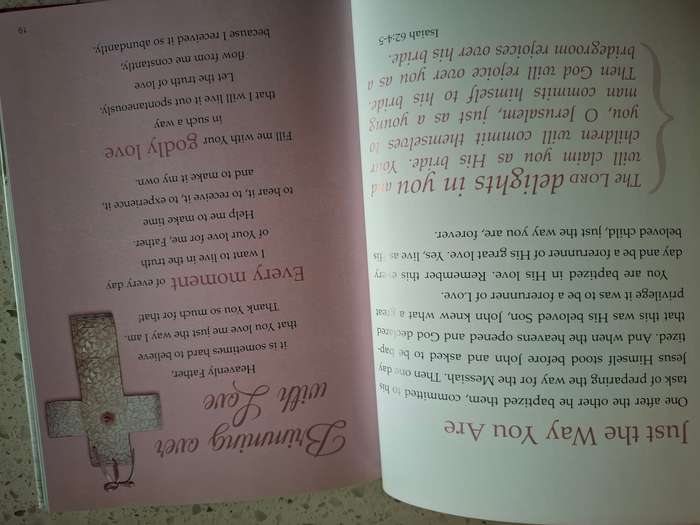 Just the Way You Are
One after the other he baptized them, committed to his
task of preparing the way for the Messiah. Then one day
Jesus Himself stood before John and asked to be bap-
tized. And when the heavens opened and God declared
that this was His beloved Son, John knew what a great
privilege it was to be a forerunner of Love.
You are baptized in His love. Remember this every
day and be a forerunner of His great love. Yes, live as His
beloved child, just the way you are, forever.
The LORD delights in you and
will claim you as His bride. Your
children will commit themselves to
you, O Jerusalem, just as a young
man commits himself to his bride.
Then God will rejoice over you as a
bridegroom rejoices over his bride.
Isaiah 62:4-5
Brimming over
with Love
Heavenly Father,
it is sometimes hard to believe
that You love me just the way I am.
Thank You so much for that!
Every moment of every day
I want to live in the truth
of Your love for me, Father.
Help me to make time
to hear it, to receive it, to experience it,
and to make it my own.
Fill me with Your godly love
in such a way
that I will live it out spontaneously.
Let the truth of love
flow from me constantly,
because I received it so abundantly.
61